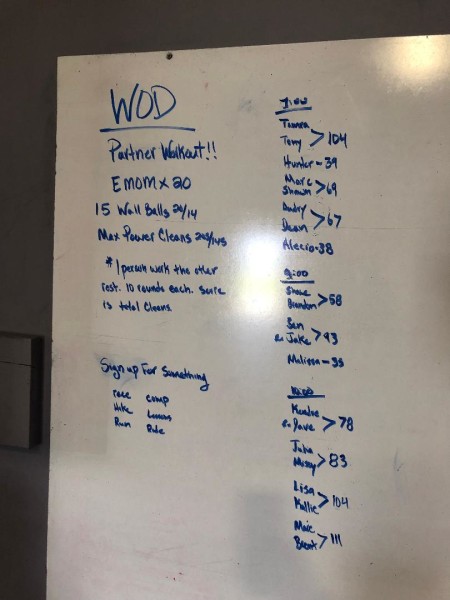 WOD
Partner Workout!!
EMOM x 20
15 Wall Balls 20/14
Max Power Cleans 205/145
* 1 person work the other
rest. 10 rounds each. Score
is total cleans.
Sign up For Something
race comp
Hike Lessons
Run Ride
Tamra
Tony > 104
Hunter - 39
Marc
Shawn > 69
Audry
Dean > 67
Alecro - 38
9:00
Shane
Brandon > 58
Sen
Jake > 93
Malissa - 35
Kendra
Dave > 78
Julia
Missy > 83
Lisa
Kallie > 104
Marc
Brent > 111